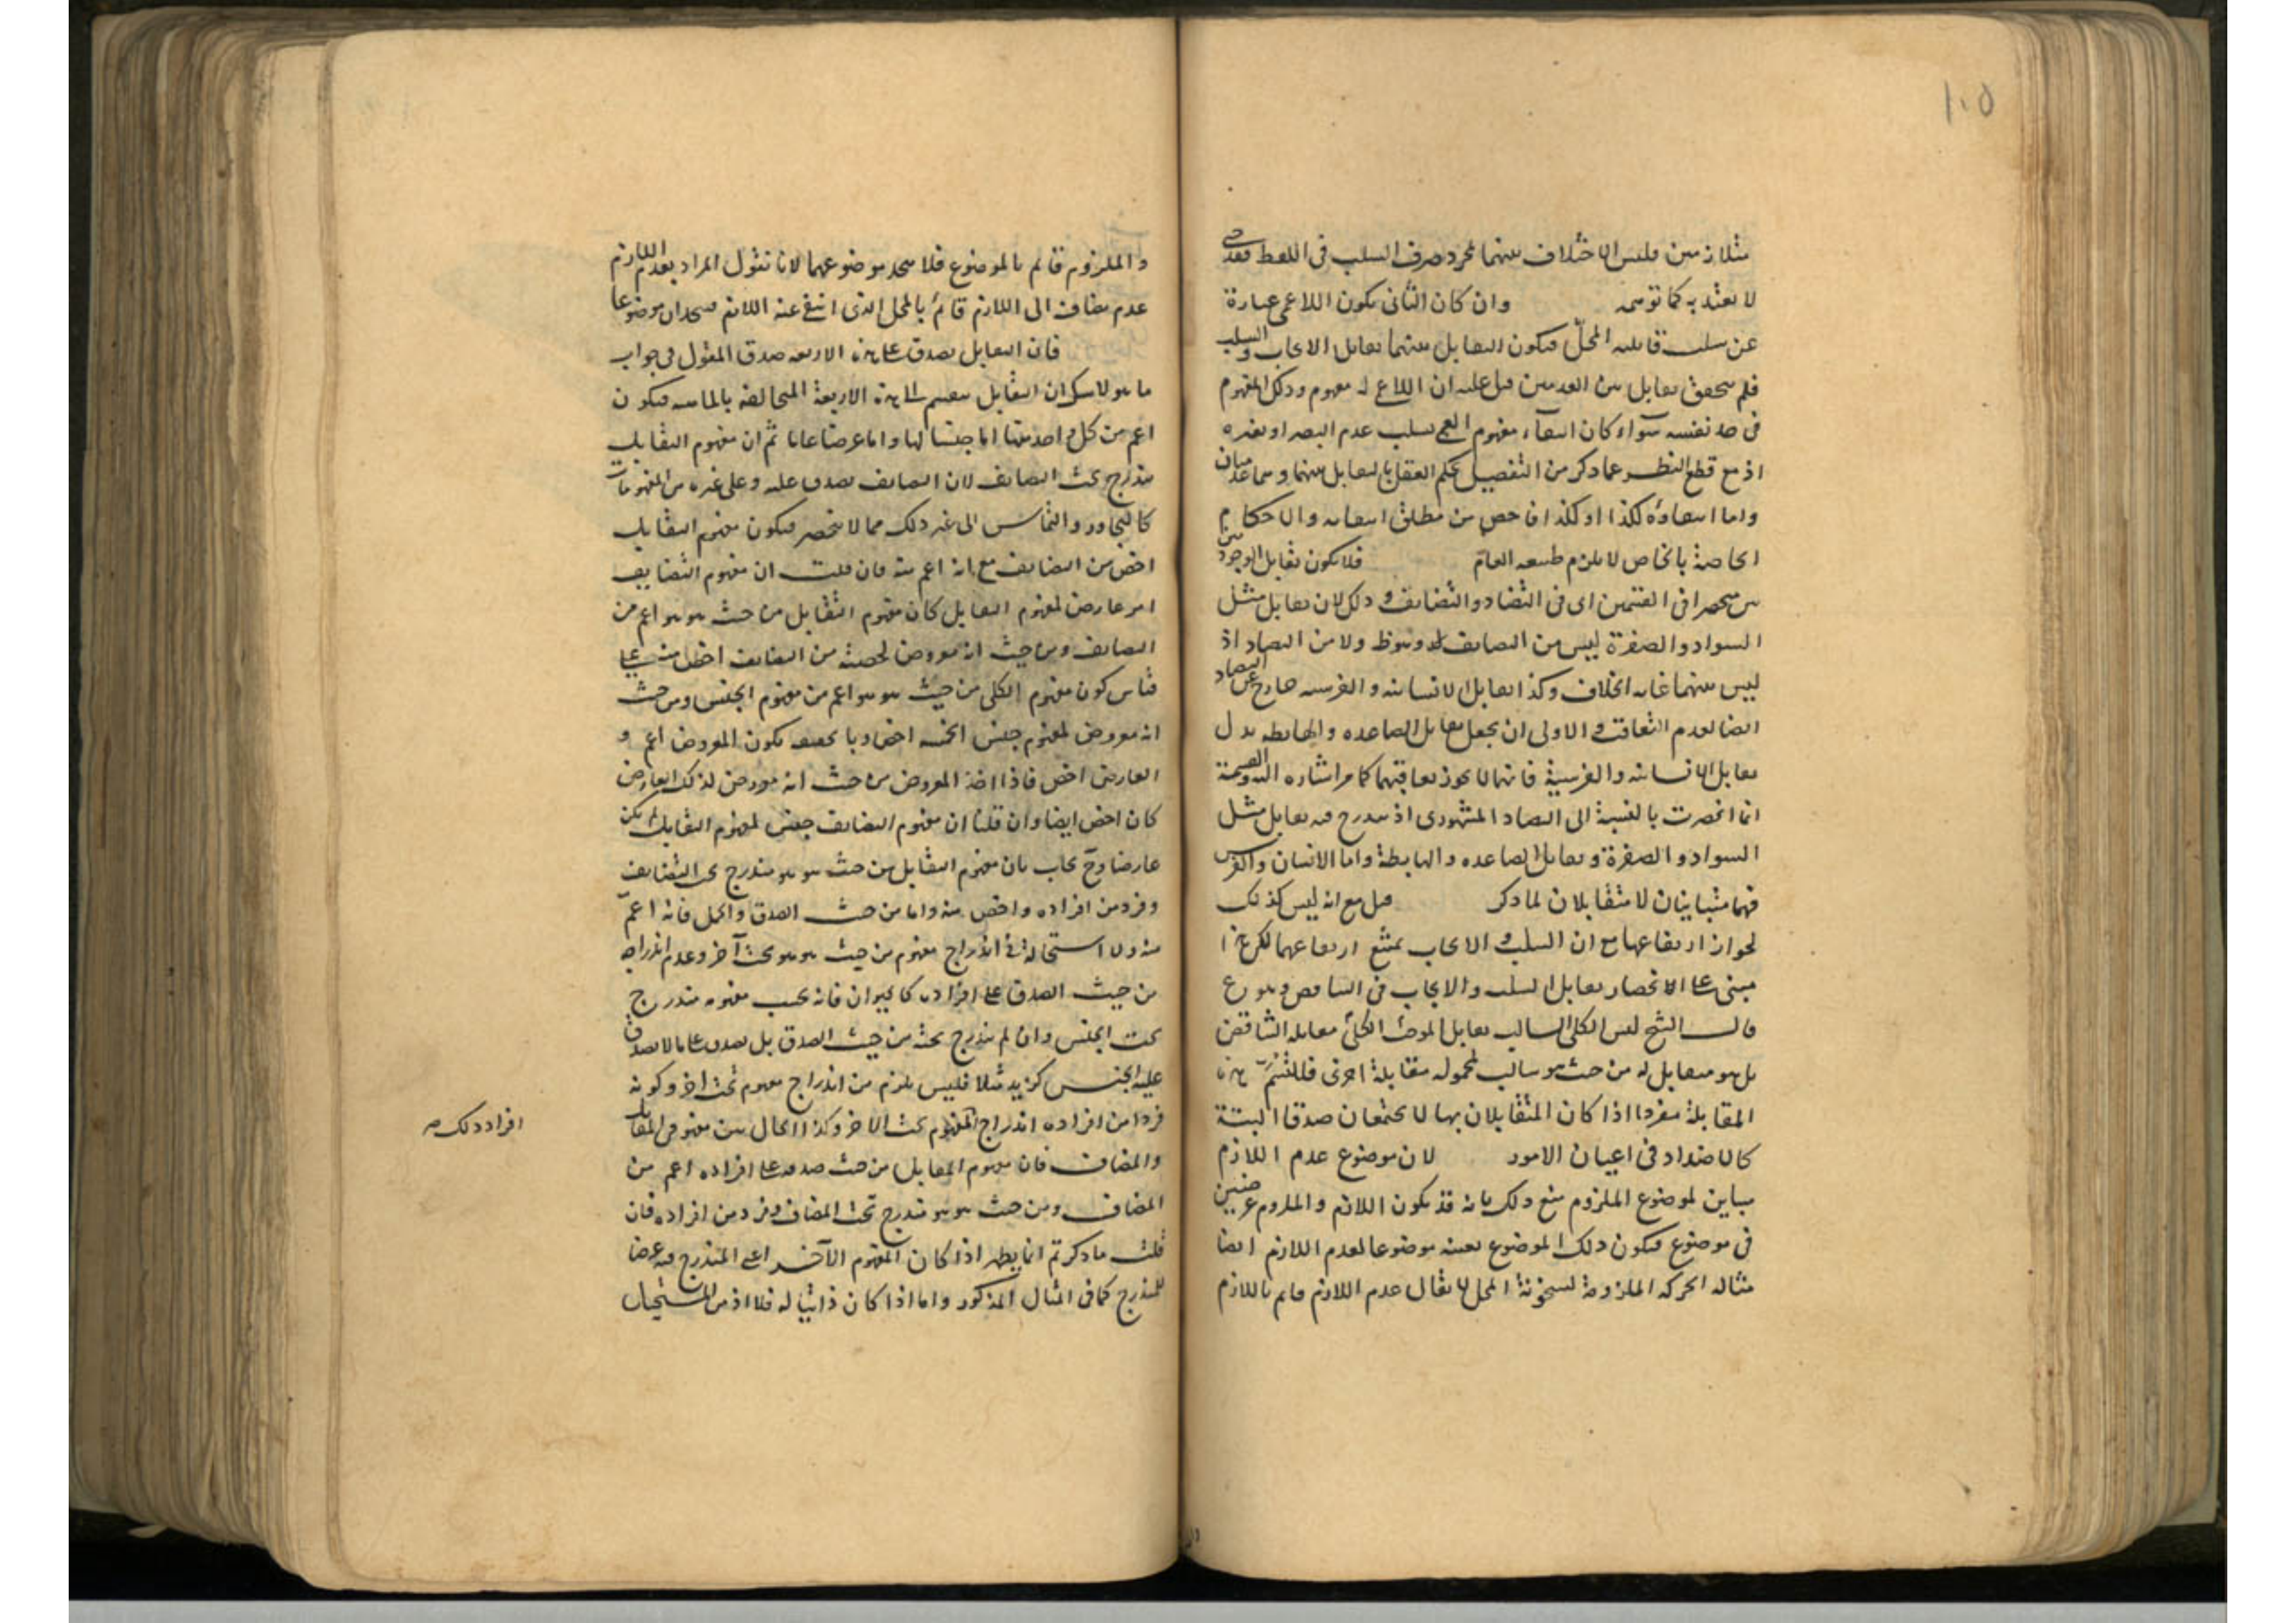 ١٠٥
متلازمين فليس الاختلاف بينهما بمجرد حرف السلب فى اللفظ فقد
لا يعتد به كما توهمه وان كان الثانى يكون اللاعمى عبارة
عن سلب قابلية المحلّ فيكون التقابل بينهما تقابل الايجاب والسلب
فلم يتحقق تقابل بين العدميين قيل عليه ان اللاعمى له مفهوم وذلك المفهوم
فى حد نفسه سوآء كان انتفآء مفهوم العمى بسلب عدم البصر او بغيره
اذ مع قطع النظر عما ذكر من التفصيل يحكم العقل بالتقابل بينهما وهما عدميان
واما انتفاؤه لكذا او كذا فاخص من مطلق انتفائه والاحكام
الخاصة بالخاص لا يلزم طبيعة العامّ فلا يكون تقابل الوجوديين
منحصرا فى القسمين اى فى التضاد والتضايف وذلك لان تقابل مثل
السواد والصفرة ليس من التضايف وهو ظ ولا من التضاد اذ
ليس بينهما غاية الخلاف وكذا تقابل الانسانية والفرسية خارج عن التضاد
ايضا لعدم التعاقب والاولى ان يجعل تقابل الصاعدة والهابطة بدل
تقابل الانسانية والفرسية فانهما لا يجوز تعاقبهما كما مر اشارة اليه والقسمة
انما انحصرت بالنسبة الى التضاد المشهورى اذ يندرج فيه تقابل مثل
السواد والصفرة وتقابل الصاعدة والهابطة واما الانسان والفرس
فهما متباينان لا متقابلان لما ذكر قيل مع انه ليس كذلك
لجواز ارتفاعهما مع ان السلب والايجاب يمتنع ارتفاعهما لكن هذا
مبنى على الانحصار تقابل السلب والايجاب فى التناقض وهو مم
قال الشيخ ليس الكلى السالب يقابل الموجب الكلى مقابلة التناقض
بل هو مقابل له من حيث هو سالب لمحموله مقابلة اخرى فلنسم هذه
المقابلة مفردا اذا كان المتقابلان بها لا يجتمعان صدقا البتة
كالاضداد فى اعيان الامور لان موضوع عدم اللازم
مباين لموضوع الملزوم منع ذلك بانه قد يكون اللازم والملزوم عرضين
فى موضوع فيكون ذلك الموضوع بعينه موضوعا لعدم اللازم ايضا
مثاله الحركة الملزومة لسخونة المحل لا يقال عدم اللازم قايم باللازم
والملزوم قائم بالموضوع فلا يتحد موضوعهما لانا نقول المراد بعدم اللازم
عدم مضاف الى اللازم قائم بالمحل الذى انتفى عنه اللازم فيتحدان موضوعا
فان التقابل يصدق على هذه الاربعة صدق المقول فى جواب
ما هو لا شك ان التقابل ينقسم الى هذه الاربعة المتخالفة بالماهية فيكون
اعم من كل واحد منها اما جنسا لها واما عرضا عاما ثم ان مفهوم التقابل
مندرج تحت التضايف لان التضايف يصدق عليه وعلى غيره من المفهومات
كالتجاور والتماس الى غير ذلك مما لا ينحصر فيكون مفهوم التقابل
اخص من التضايف مع انه اعم منه فان قلت ان مفهوم التضايف
امر عارض لمفهوم التقابل كان مفهوم التقابل من حيث هو هو اعم من
التضايف ومن حيث انه معروض لحصته من التضايف اخص منه على
قياس كون مفهوم الكلى من حيث هو هو اعم من مفهوم الجنس ومن حيث
انه معروض لمفهوم جنس الخمسة اخص وبالحقيقة يكون المعروض اعم و
العارض اخص فاذا اخذ المعروض من حيث انه معروض لذلك العارض
كان اخص ايضا وان قلنا ان مفهوم التضايف جنس لمفهوم التقابل لم يكن
عارضا وحّ يجاب بان مفهوم التقابل من حيث هو هو مندرج تحت التضايف
وفرد من افراده واخص منه واما من حيث الصدق والحمل فانه اعمّ
منه ولا استحالة فى اندراج مفهوم من حيث هو هو تحت آخر وعدم اندراجه
من حيث الصدق على افراده كالحيوان فانه بحسب مفهومه مندرج
تحت الجنس وان لم يندرج تحته من حيث الصدق بل يصدق على ما لا يصدق
عليه الجنس كزيد مثلا فليس يلزم من اندراج مفهوم تحت اخر وكونه
فردا من افراده اندراج المفهوم تحت الاخر وكذا الحال بين مفهومى المقابل
افراد ذلك صح
والمضاف فان مفهوم المقابل من حيث صدقه على افراده اعم من
المضاف ومن حيث هو هو مندرج تحت المضاف وفرد من افراده فان
قلت ما ذكرتم انما يظهر اذا كان المفهوم الآخر اعنى المندرج فيه عرضا
للمندرج كما فى المثال المذكور واما اذا كان ذاتيا له فلا اذ من المستحيل